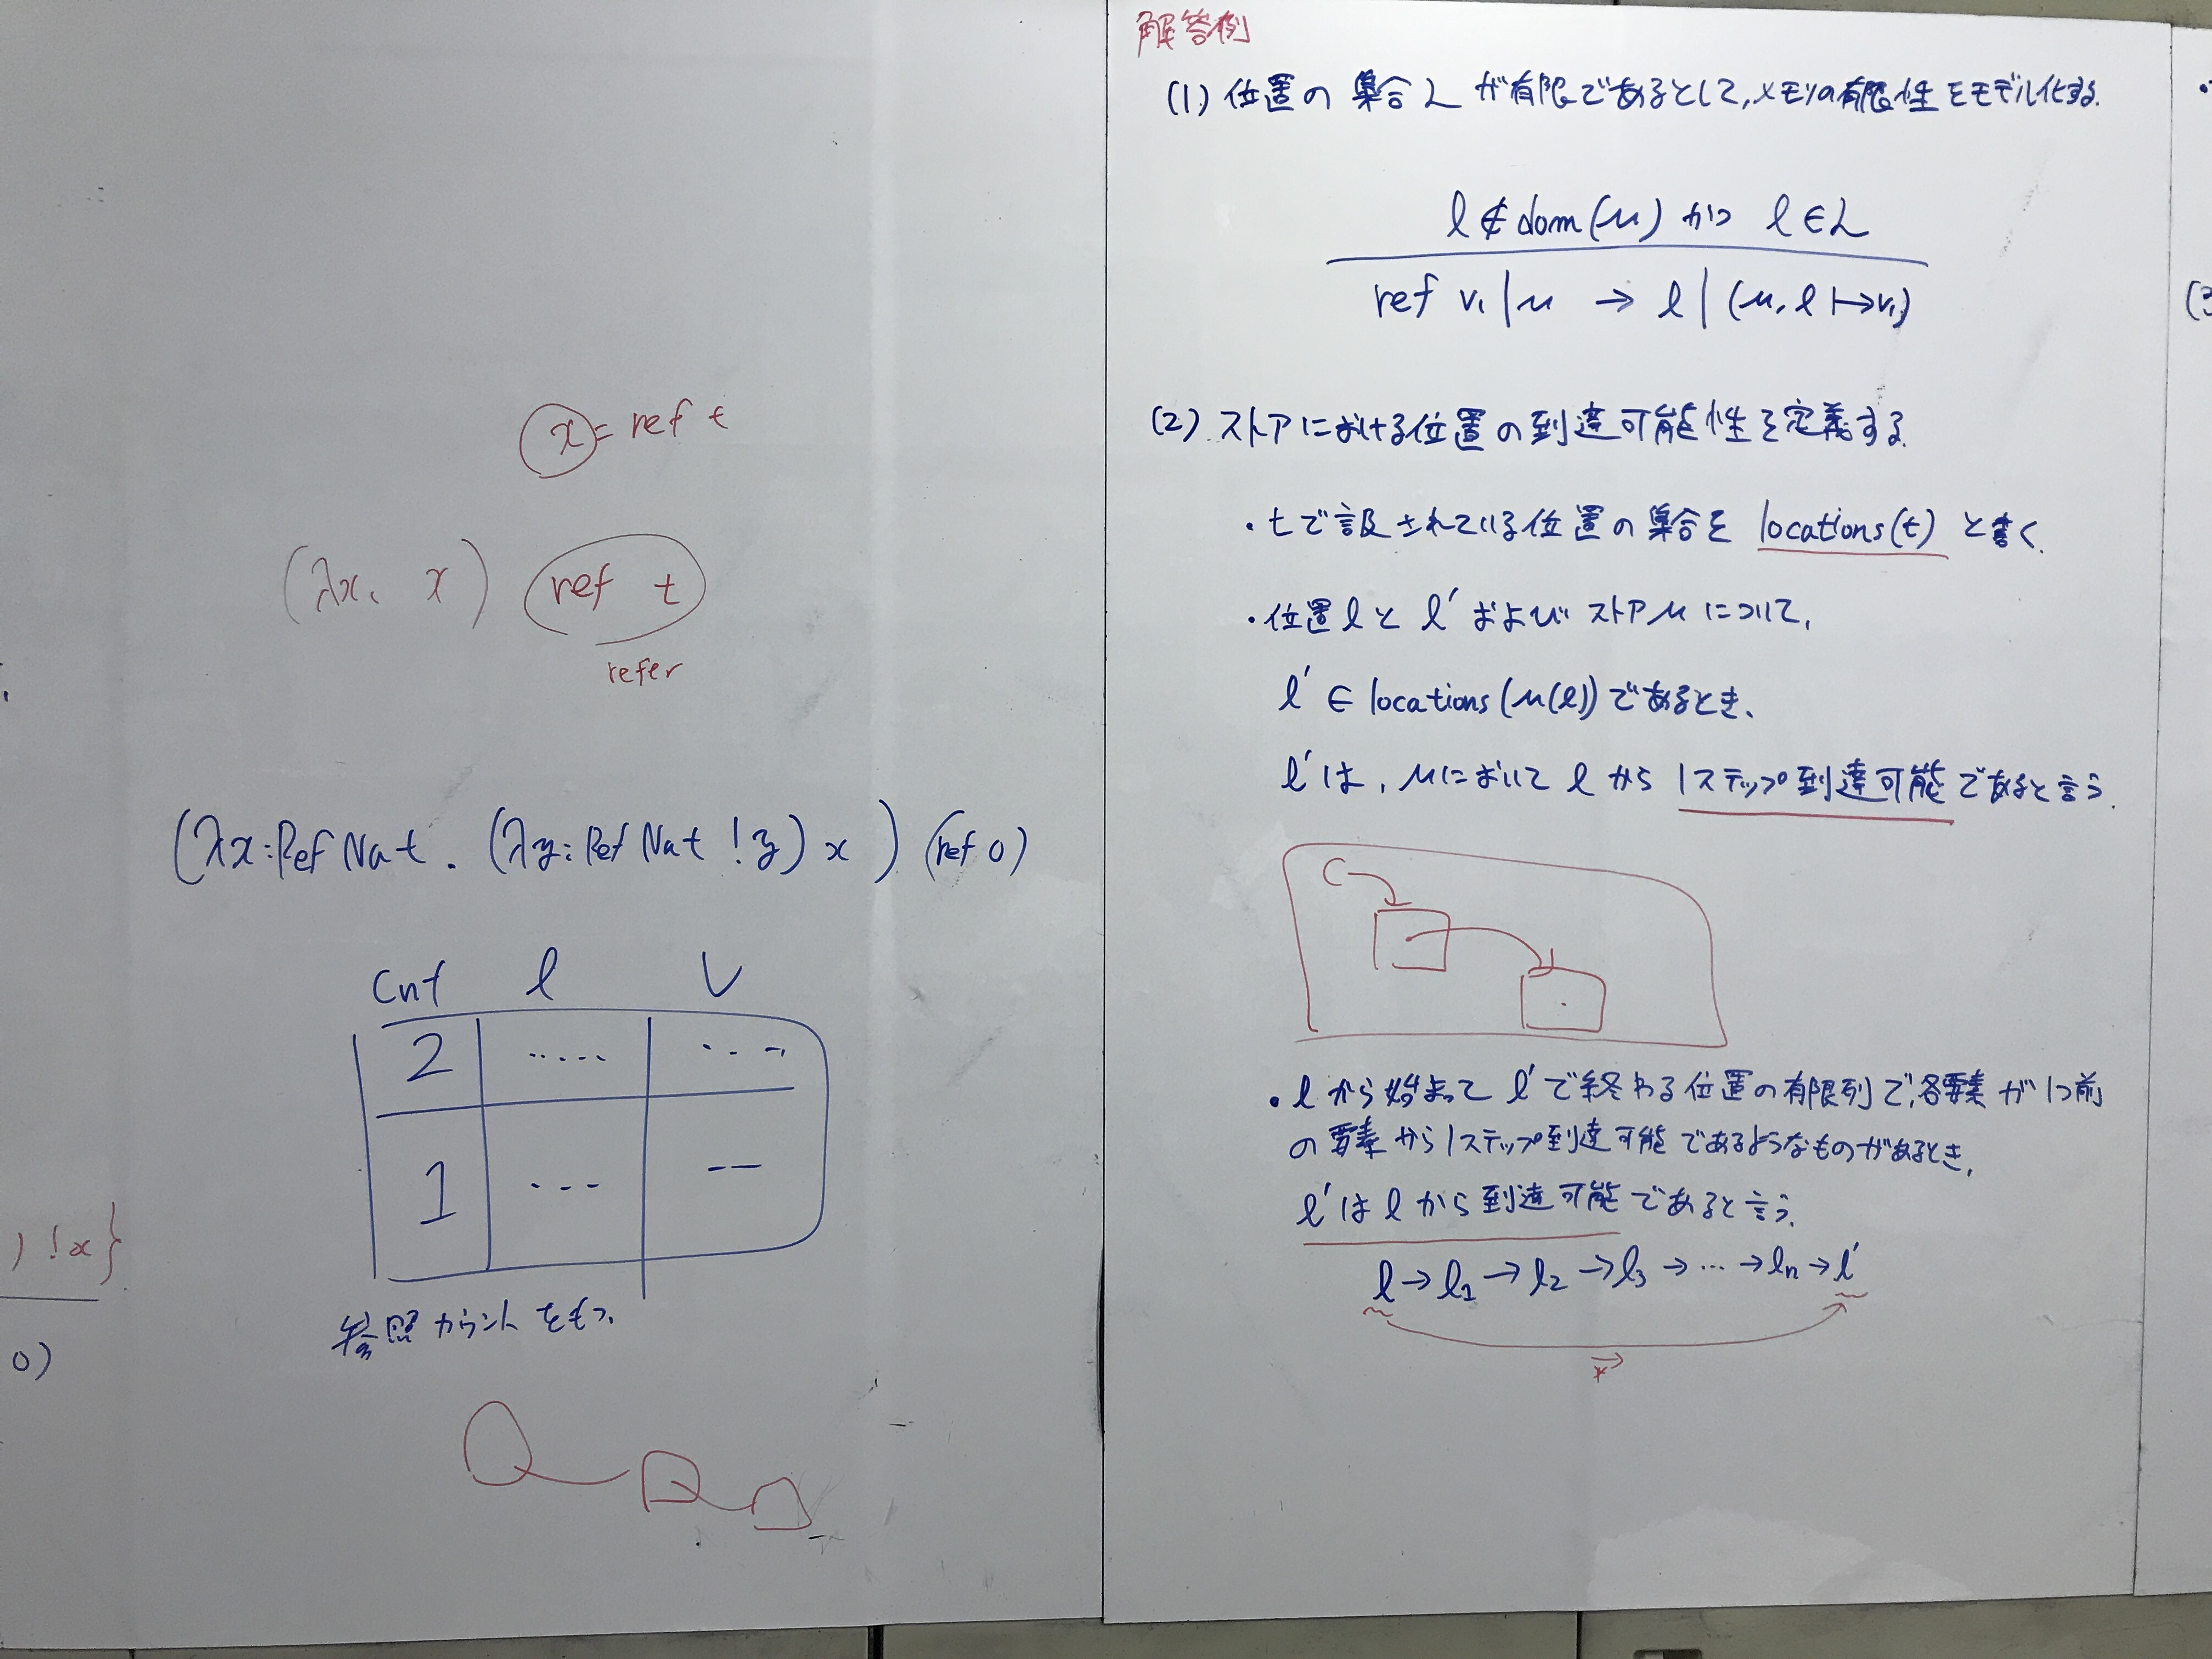 x = ref t
(λx. x) ref t
refer
(λx:Ref Nat. (λy:Ref Nat !y) x) (ref 0)
Cnt l V
2 ..... ...
1 ... --
参照カウントをもつ.
) !x}
0)
解答例
(1) 位置の集合 L が有限であるとして,メモリの有限性をモデル化する.
l ∉ dom(μ) かつ l ∈ L
ref v₁ | μ → l | (μ, l ↦ v₁)
(2) ストアにおける位置の到達可能性を定義する.
・tで言及されている位置の集合を locations(t) と書く.
・位置 l と l' および ストア μ について,
l' ∈ locations(μ(l)) であるとき、
l' は, μ において l から 1ステップ到達可能であると言う.
・l から始まって l' で終わる位置の有限列で,各要素が1つ前
の要素から1ステップ到達可能であるようなものがあるとき,
l' は l から到達可能であると言う.
l → l₁ → l₂ → l₃ → … → lₙ → l'
→*
(3